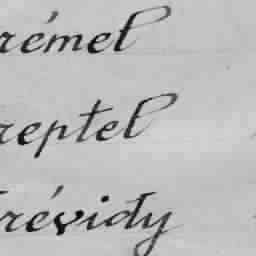 rémel
reptel
révidy